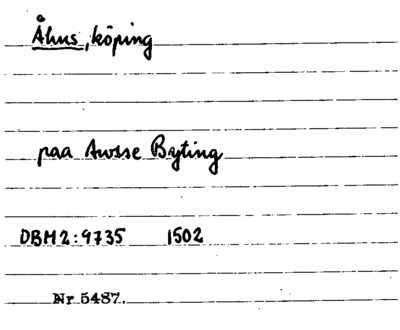 Åhus, köping
paa Awsse Byting
DBM2:9735 1502
Nr 5487.